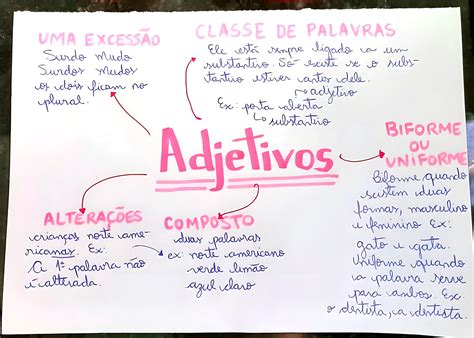 UMA EXCESSÃO
Surdo Mudo
Surdos Mudos
os dois ficam no
plural.
CLASSE DE PALAVRAS
Ele está sempre ligado a um
substantivo. Só existe se o subs-
tantivo estiver antes dele.
adjetivo
Ex: porta aberta
substantivo
Adjetivos
BIFORME
OU
UNIFORME
Biforme quando
existem duas
formas, masculino
e feminino Ex:
gato e gata.
Uniforme quando
a palavra serve
para ambos. Ex:
o dentista, a dentista.
ALTERAÇÕES
crianças norte ame-
ricanas. Ex:
A 1ª palavra não
é alterada.
COMPOSTO
duas palavras
ex: norte americano
verde limão
azul claro